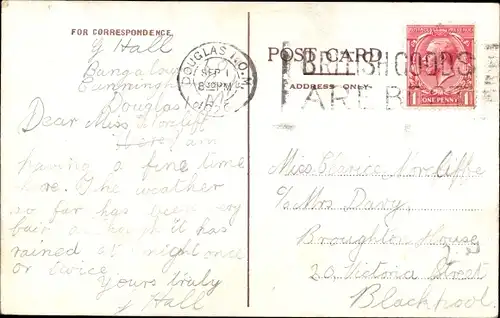 FOR CORRESPONDENCE.
J Hall
Bungalow
Cunningh
Douglas
Dear Miss Norcliffe
Here I am
having a fine time
here. The weather
so far has been very
fair although it has
rained at night once
or twice
Yours truly
J Hall
DOUGLAS I.O.M.
SEP 1
8 30 PM
POST CARD
ADDRESS ONLY.
BRITISH GOODS
ARE B
ONE PENNY
Miss Clarice Norcliffe
c/o Mrs Davy
Broughton House
20 Victoria Street
Blackpool.